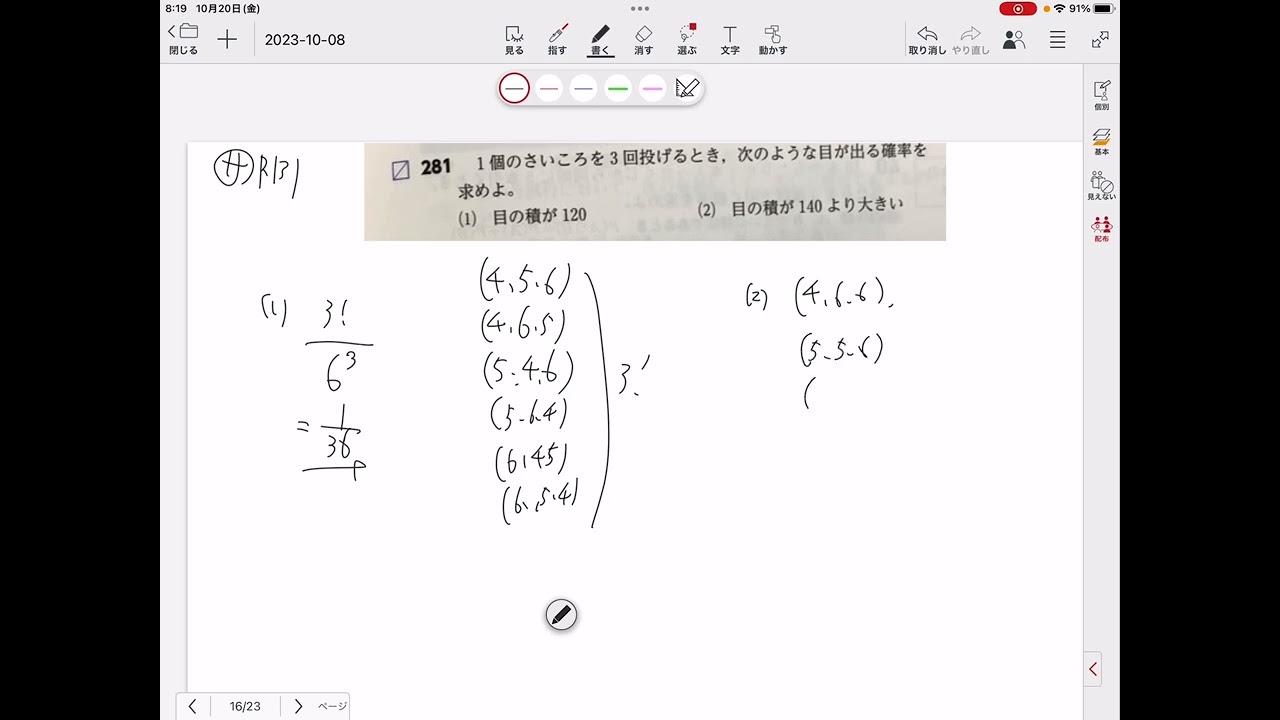 8:19 10月20日(金)
91%
閉じる
2023-10-08
見る 指す 書く 消す 選ぶ 文字 動かす
取り消し やり直し
個別
基本
見えない
配布
サ P.131
281 1個のさいころを3回投げるとき，次のような目が出る確率を
求めよ。
(1) 目の積が120 (2) 目の積が140より大きい
(1) 3!
6³
= 1
36
(4,5,6)
(4,6,5)
(5,4,6)
(5,6,4)
(6,4,5)
(6,5,4)
3!
(2) (4,6,6),
(5,5,6)
(
16/23 ページ